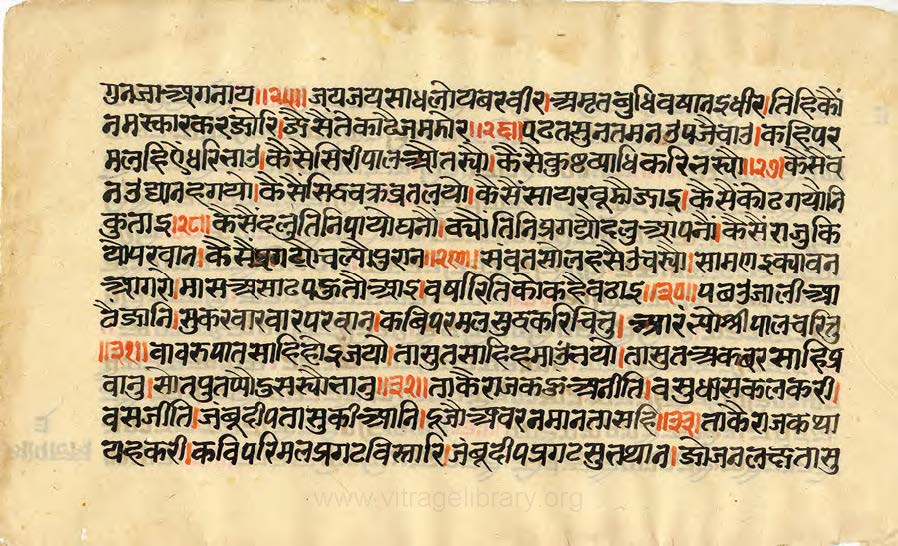 गुनजाञ्प्रगनाय॥२५॥जयजयसाधलोयबरवीर।अमृतबुधिवषानइधीर।तिहिकौं
नमस्कारकरजोरि।जैसतकाटजममोर॥२६॥पढतसुनतमनउपजैचाउ।कहिपर
मलहिएधरिचाउ।कैसैसिरीपालअौतस्यो।कैसेकुष्टव्याधिकरिनस्यो॥२७॥कैसेव
नउद्यानहगयो।कैसैसिद्धचक्रव्रतलयो।कैसेसायरबूमोजाइ।कैसैकोढगयौनि
कुताइ॥२८॥कैसेदलुतिनिपायोघनौ।क्यौतिनिप्रगट्योदलुआपनौ।कैसैराजुकि
योपरवान।कैसैप्रगटोचल्योपुरान॥२९॥संवतसोलहसैउचस्यो।सामणइक्यावन
आगरो।मासअसाढपहुतौआइ।वर्षारितिकोकहैबढाइ॥३०॥पबउजालीआ
ठैजानि।सुकरवारवारपरवान।कबिपरमलसुद्धकरिचितु।आरंभ्योश्रीपालचरितु
॥३१॥बाबरपातसाहिहोइजयो।तासुतसाहिहमाउंनयो।तासुतअकबरसाहिप्र
वानु।सोतपुतप्यौउसस्योनानु॥३२॥ताकैराजकहुंअनीति।वसुधासकलकरी
वसजीति।जंबूदीपतासुकीआनि।दूजोअवरनमानतासहि॥३३॥ताकैराजकथा
यहकरी।कविपरिमलप्रगटविस्तारि।जंबूदीपप्रगटसुतथान।जोजनलछतासु
www.vitragelibrary.org